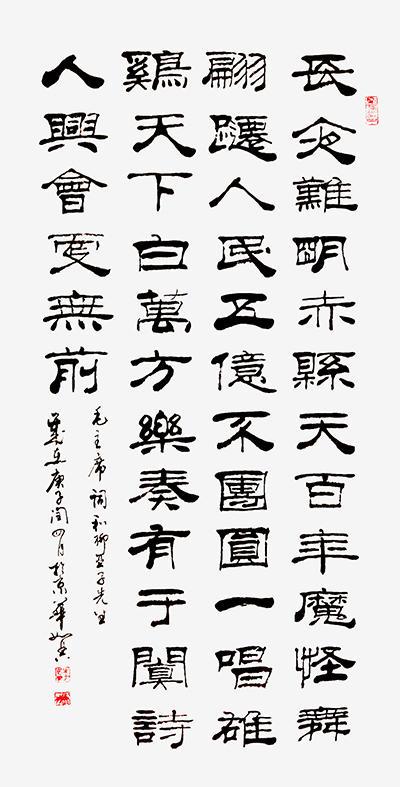 長夜難明赤縣天百年魔怪舞
翩躚人民五億不團圓一唱雄
鷄天下白萬方樂奏有于闐詩
人興會更無前
毛主席詞和柳亞子先生
歲在庚子閏四月於京華